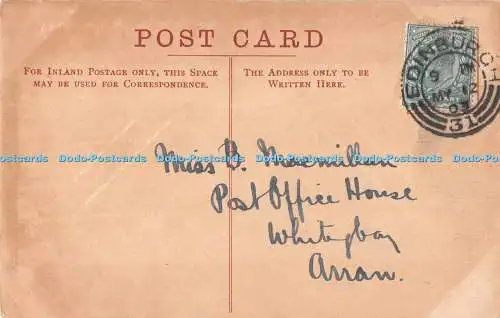 POST CARD
FOR INLAND POSTAGE ONLY, THIS SPACE
MAY BE USED FOR CORRESPONDENCE.
THE ADDRESS ONLY TO BE
WRITTEN HERE.
EDINBURGH
MY 12
31
Dodo-Postcards Dodo-Postcards Dodo-Postcards Dodo-Postcards Dodo-Postcards
Miss B. Macmillan
Post Office House
Whitingbay
Arran.